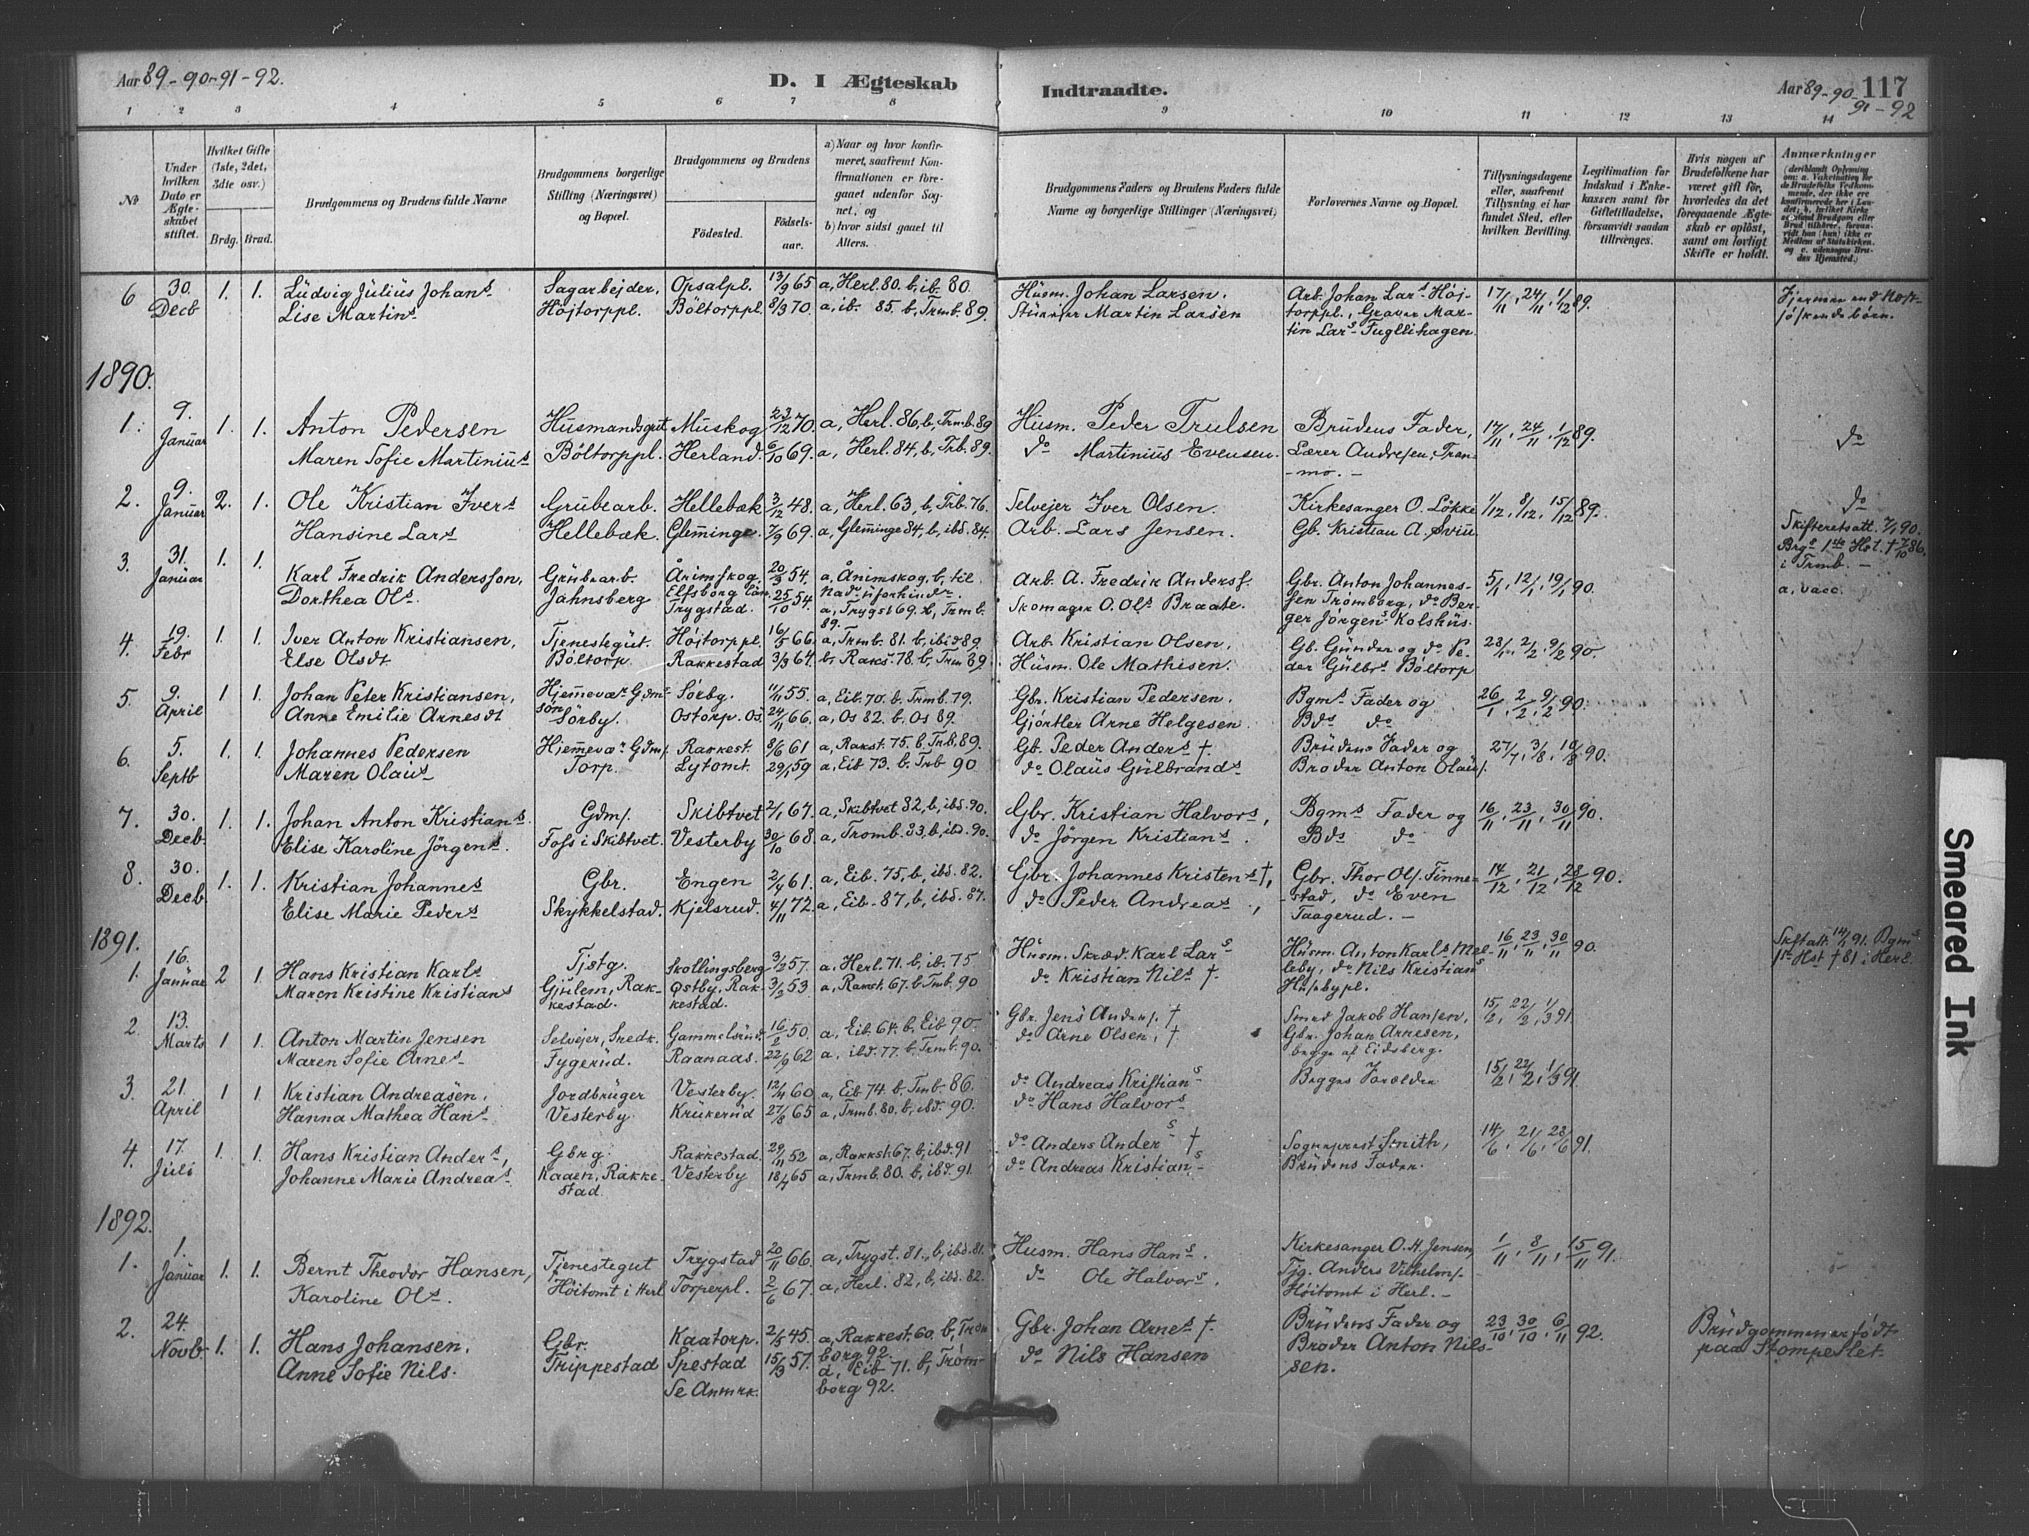 Aar 89-90-91-92.
D. I Ægteskab Indtraadte.
Aar 89-90-91-92
117
1 2 3 4 5 6 7 8 9 10 11 12 13 14
No
Under hvilken Dato er Ægteskabet stiftet.
Hvilket Gifte (1ste, 2det, 3die osv.)
Brdg. Brud.
Brudgommens og Brudens fulde Navne
Brudgommens borgerlige Stilling (Næringsvei) og Bopæl.
Brudgommens og Brudens
Fødested.
Fødselsaar.
a) Naar og hvor konfirmeret, saafremt Konfirmationen er foregaaet udenfor Sognet, og
b) hvor sidst gaaet til Alters.
Brudgommens Faders og Brudens Faders fulde Navne og borgerlige Stillinger (Næringsvei)
Forlovernes Navne og Bopæl.
Tillysningsdagene eller, saafremt Tillysning ei har fundet Sted, efter hvilken Bevilling.
Legitimation for Indskud i Enkekassen samt for Giftetilladelse, forsaavidt saadan tiltrænges.
Hvis nogen af Brudefolkene har været gift før, hvorledes da det foregaaende Ægteskab er opløst, samt om lovligt Skifte er holdt.
Anmærkninger
6 30. Decb 1. 1. Ludvig Julius Johans Sagarbejder, Opsalpl. 13/9 65 a, Herl. 80. b, ib. 80. Husm. Johan Larsen. Arb. Johan Lars Høj- 17/11, 24/11, 1/12 89.
Lise Martins Höjtorppl. Böltorppl. 8/3 70. a, ib. 85. b, Trmb. 89. Martin Larsen torppl., Graver Martin Lars Fugllihagen. søskendebørn.
1890.
1. 9. Januar 1. 1. Anton Pedersen Husmandsgut Muskog 23/12 70. a, Herl. 86, b, Trmb. 89 Husm. Peder Trulsen Brudens Fader, 17/11, 24/11, 1/12 89. do
Maren Sofie Martinius Böltorppl. Herland. 6/10 69. a, Herl. 84, b, Trb. 89. do Martinius Evensen. Lærer Andresen, Tranmo. -
2. 9. Januar 2. 1. Ole Kristian Ivers Grubearb. Hellebæk 3/12 48. a, Herl. 63, b, Trb. 76. Selvejer Iver Olsen. Kirkesanger O. Løkke 1/12, 8/12, 15/12 89. do
Hansine Lars Hellebæk. Glemminge 7/9 69. a, Glemminge 84, b, ibd. 84. Arb. Lars Jensen. Gb. Kristian A. Sviu Skifteretsatt. 7/1 90. Brgs 1ste Hst. † 7/10 86. i Trmb. -
3. 31. Januar 1. 1. Karl Fredrik Andersson, Grubearb. Ånimskog, Elfsborg län 20/3 54. a, Ånimskog, b, til Arb. A. Fredrik Anderss. Gbr. Anton Johannes- 5/1, 12/1, 19/1 90. a, vacc.
Dorthea Ols. Jahnsberg Trygstad. 25/10 54 a, Trygst 69. b, Trmb. 89. Skomager O. Ols Braate. sen Trømborg, do Berger Jørgens Kolshus.
4. 19. Febr 1. 1. Iver Anton Kristiansen, Tjenestegut. Höitorppl. 16/5 66. a, Trmb. 81. b, ibid 89. Arb. Kristian Olsen. Gb. Gunder og do Pe- 28/1, 2/2, 9/2 90.
Else Olsdt Böltorp. Rakkestad 3/3 64. b, Raks. 78. b, Trm 89 Husm. Ole Mathisen. der Gulbrs Böltorp
5. 9. April 1. 1. Johan Peter Kristiansen, Hjemmevær Gdmsön Sörby. 11/11 55. a, Eib. 70. b. Trmb. 79. Gbr. Kristian Pedersen. Bgms Fader og 26/1, 2/2, 9/2 90.
Anne Emilie Arnesdt Sörby. Ostorp. Os. 24/11 66. a, Os 82. b. Os 89. Gjörtler Arne Helgesen Bds do
6. 5. Septb 1. 1. Johannes Pedersen Hjemmevær Gdms Rakkest. 8/6 61 a, Rakst. 75. b. Trb. 89. Gb. Peder Anders † Brudens Fader og 27/7, 3/8, 10/8 90.
Maren Olaus Torp. Lytomt. 29/1 59 a, Eib. 73. b. Trb 90 do Olaus Gulbrands Broder Anton Olaus.
7. 30. Decb. 1. 1. Johan Anton Kristians. Gdms Skibtvet 2/1 67. a, Skibtvet 82, b, ibd. 90. Gbr. Kristian Halvors, Bgms Fader og 16/11, 23/11, 30/11 90.
Elise Karoline Jörgens. Foss i Skibtvet. Vesterby 30/10 68. a, Tromb. 83, b, ibd. 90. do Jörgen Kristians. Bds do
8. 30. Decb. 1. 1. Kristian Johannes Gbr. Engen 2/4 61. a, Eib. 75, b, ibd. 82. Gbr. Johannes Kristens †, Gbr. Thor Ols. Finne- 14/12, 21/12, 28/12 90.
Elise Marie Peders Skykkelstad. Kjelsrud. 4/11 72. a, Eib. 87, b, ibd. 87. do Peder Andreas, stad, do Even Taagerud. -
1891.
1. 16. Januar 2 1. Hans Kristian Karls Tjstg. Skollingsberg 3/2 57. a, Herl. 71. b, ib. 75 Husm. Skræd. Karl Lars Husm. Anton Karls Mel- 16/11, 23/11, 30/11 90. Skftatt. 14/1 91. Bgms 1ste Hst † 81 i Herl.
Maren Kristine Kristians Gjulem, Rakkestad. Østby, Rakkestad. 3/2 53. a, Rakst. 67. b. Tmb. 90 do Kristian Nils †. leby, do Nils Kristians Husebypl.
2. 13. Marts 1 1. Anton Martin Jensen Selvejer, Snedk. Gammelsrud. 16/2 50. a, Eib 64. b, Eib 90. Gbr. Jens Anders. † Smed Jakob Hansen, 15/2, 22/2, 1/3 91.
Maren Sofie Arnes Fygerud. Ramaas. 22/9 62 a, ibd. 77. b, Trmb. 90. do Arne Olsen, † Gbr. Johan Arnesen, begge af Eidsberg.
3. 21. April 1 1. Kristian Andreasen. Jordbruger Vesterby. 12/4 60. a, Eib 74. b, Tmb. 86. do Andreas Kristians Begges Forældre 15/2, 22/2, 1/3 91.
Hanna Mathea Hans. Vesterby. Krukerud 27/8 65 a, Trmb. 80. b, ibd. 90. do Hans Halvors
4. 17. Juli 1. 1. Hans Kristian Anders, Gbrg. Rakkestad. 29/11 52 a, Rakkst. 67. b, ibd. 91 do Anders Anders † Sogneprest Smith, 14/6, 21/6, 28/6 91.
Johanne Marie Andreas. Kaaen, Rakkestad. Vesterby 18/7 65 a, Trmb. 80. b, ibd. 91. do Andreas Kristians. Brudens Fader.
1892.
1. 1. Januar 1. 1. Bernt Theodor Hansen, Tjenestegut Trygstad 20/11 66. a, Trygst. 81., b, ibd. 81. Husm. Hans Hans. Kirkesanger O. H. Jensen 1/11, 8/11, 15/11 91.
Karoline Ols. Höitomt i Herl Torperpl. 2/6 67. a, Herl. 82, b, ibd. 82. do Ole Halvors. Tjg. Anders Vilhelms. Höitomt i Herl. -
2. 24. Novb. 1. 1. Hans Johansen. Gbr. Kaatorp. 2/5 45. a, Rakkest. 60. b, Tromborg 92. Gbr. Johan Arnes †. Brudens Fader og 23/10, 30/10, 6/11 92. Brudgommen er født
Anne Sofie Nils. Trippestad Spestad 15/3 57. a, Eib. 71. b, Trömborg 92. do Nils Hansen Broder Anton Nilssen. paa Stompeslet.
Se Anmrk.
Smeared Ink